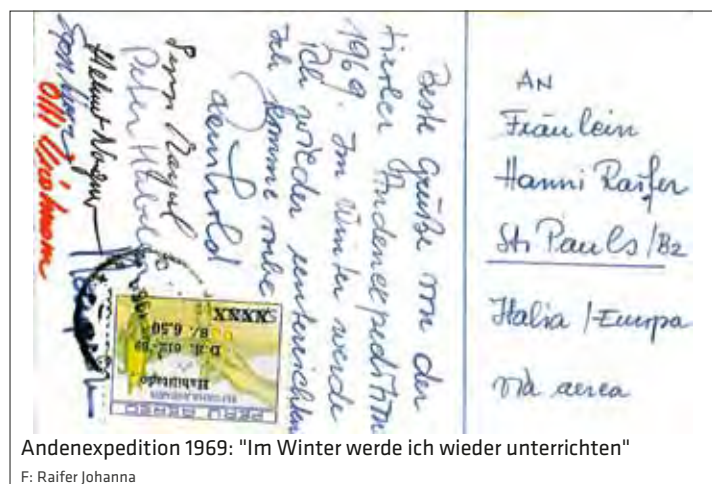 Beste Grüße von der
Tiroler Andenexpedition
1969. Im Winter werde
ich wieder unterrichten
Ich komme
Reinhold
Sepp Mayerl
Peter Habeler
Helmut Wagner
PERU AEREO
Habilitado
D.S.
S/. 6.50
XXXX
AN
Fräulein
Hanni Raifer
St. Pauls/Bz
Italia/Europa
via aerea
Andenexpedition 1969: "Im Winter werde ich wieder unterrichten"
F: Raifer Johanna